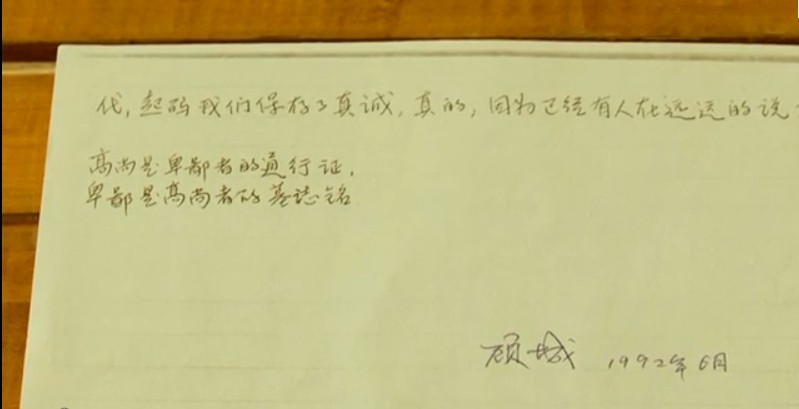 代，起码我们保存了真诚，真的，因为已经有人在远远的说
高尚是卑鄙者的通行证，
卑鄙是高尚者的墓志铭
顾城 1992年6月